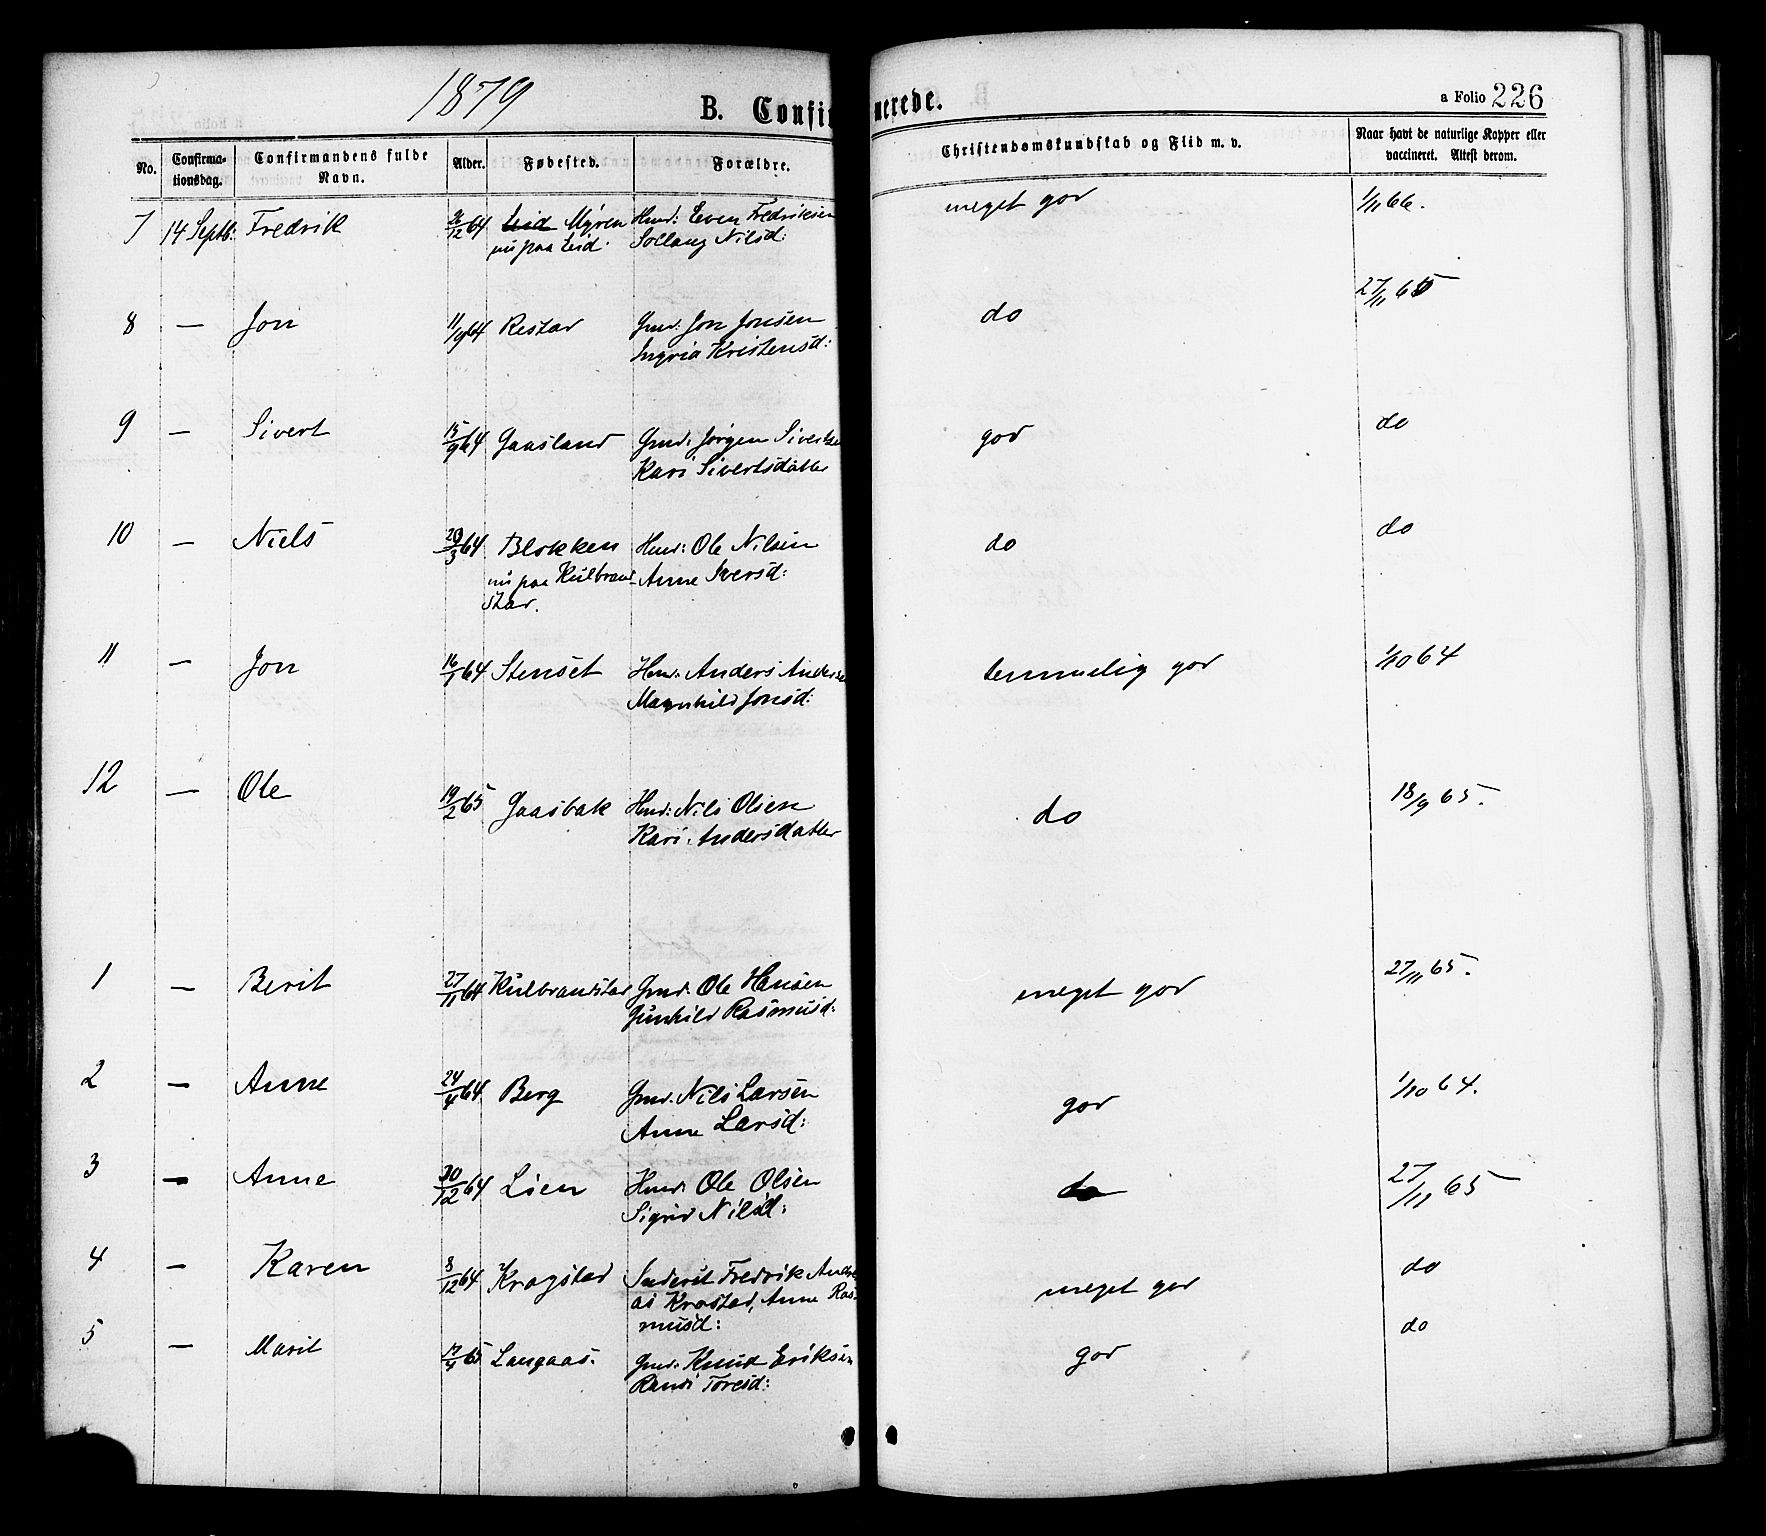 1879
B. Confirmerede.
a Folio 226
No.
Confirma-
tionsdag.
Confirmandens fulde
Navn.
Alder.
Fødested.
Forældre.
Christendomskundskab og Flid m. v.
Naar havt de naturlige Kopper eller
vaccineret. Attest derom.
7 14 Septb: Fredrik 26/12 64 Lid Myren Hmd: Even Fredriksen meget god 1/11 66.
nu paa Lid. Sollaug Nilsd:
8 — Jon 11/9 64 Restad Gmd: Jon Jonsen do 27/11 65
Ingria Kristensd:
9 — Sivert 15/9 64 Gaasland Gmd: Jørgen Sivertsen god do
Kari Sivertsdatter
10 — Niels 20/3 64 Blokken Hmd: Ole Nilsen do do
nu paa Kulbrand- Anne Iversd:
stad.
11 — Jon 16/1 64 Stenset Hmd: Anders Anders temmelig god 1/10 64
Magnhild Jonsd:
12 — Ole 19/2 65 Gaasbak Hmd: Nils Olsen do 18/9 65.
Kari Andersdatter
1 — Berit 27/11 64 Kulbrandstad Gmd: Ole Hansen meget god 27/11 65.
Gunhild Rasmusd:
2 — Anne 24/4 64 Berg Gmd: Nils Larsen god 1/10 64.
Anne Larsd:
3 — Anne 30/12 64 Lien Hmd: Ole Olsen do 27/11 65
Sigrid Nilsd:
4 — Karen 8/12 64 Kragstad Inderst Fredrik Andre meget god do
as Krastad, Anne Ras-
musd:
5 — Marit 17/4 65 Langaas. Gmd: Knud Eriksen god do
Randi Toresd: